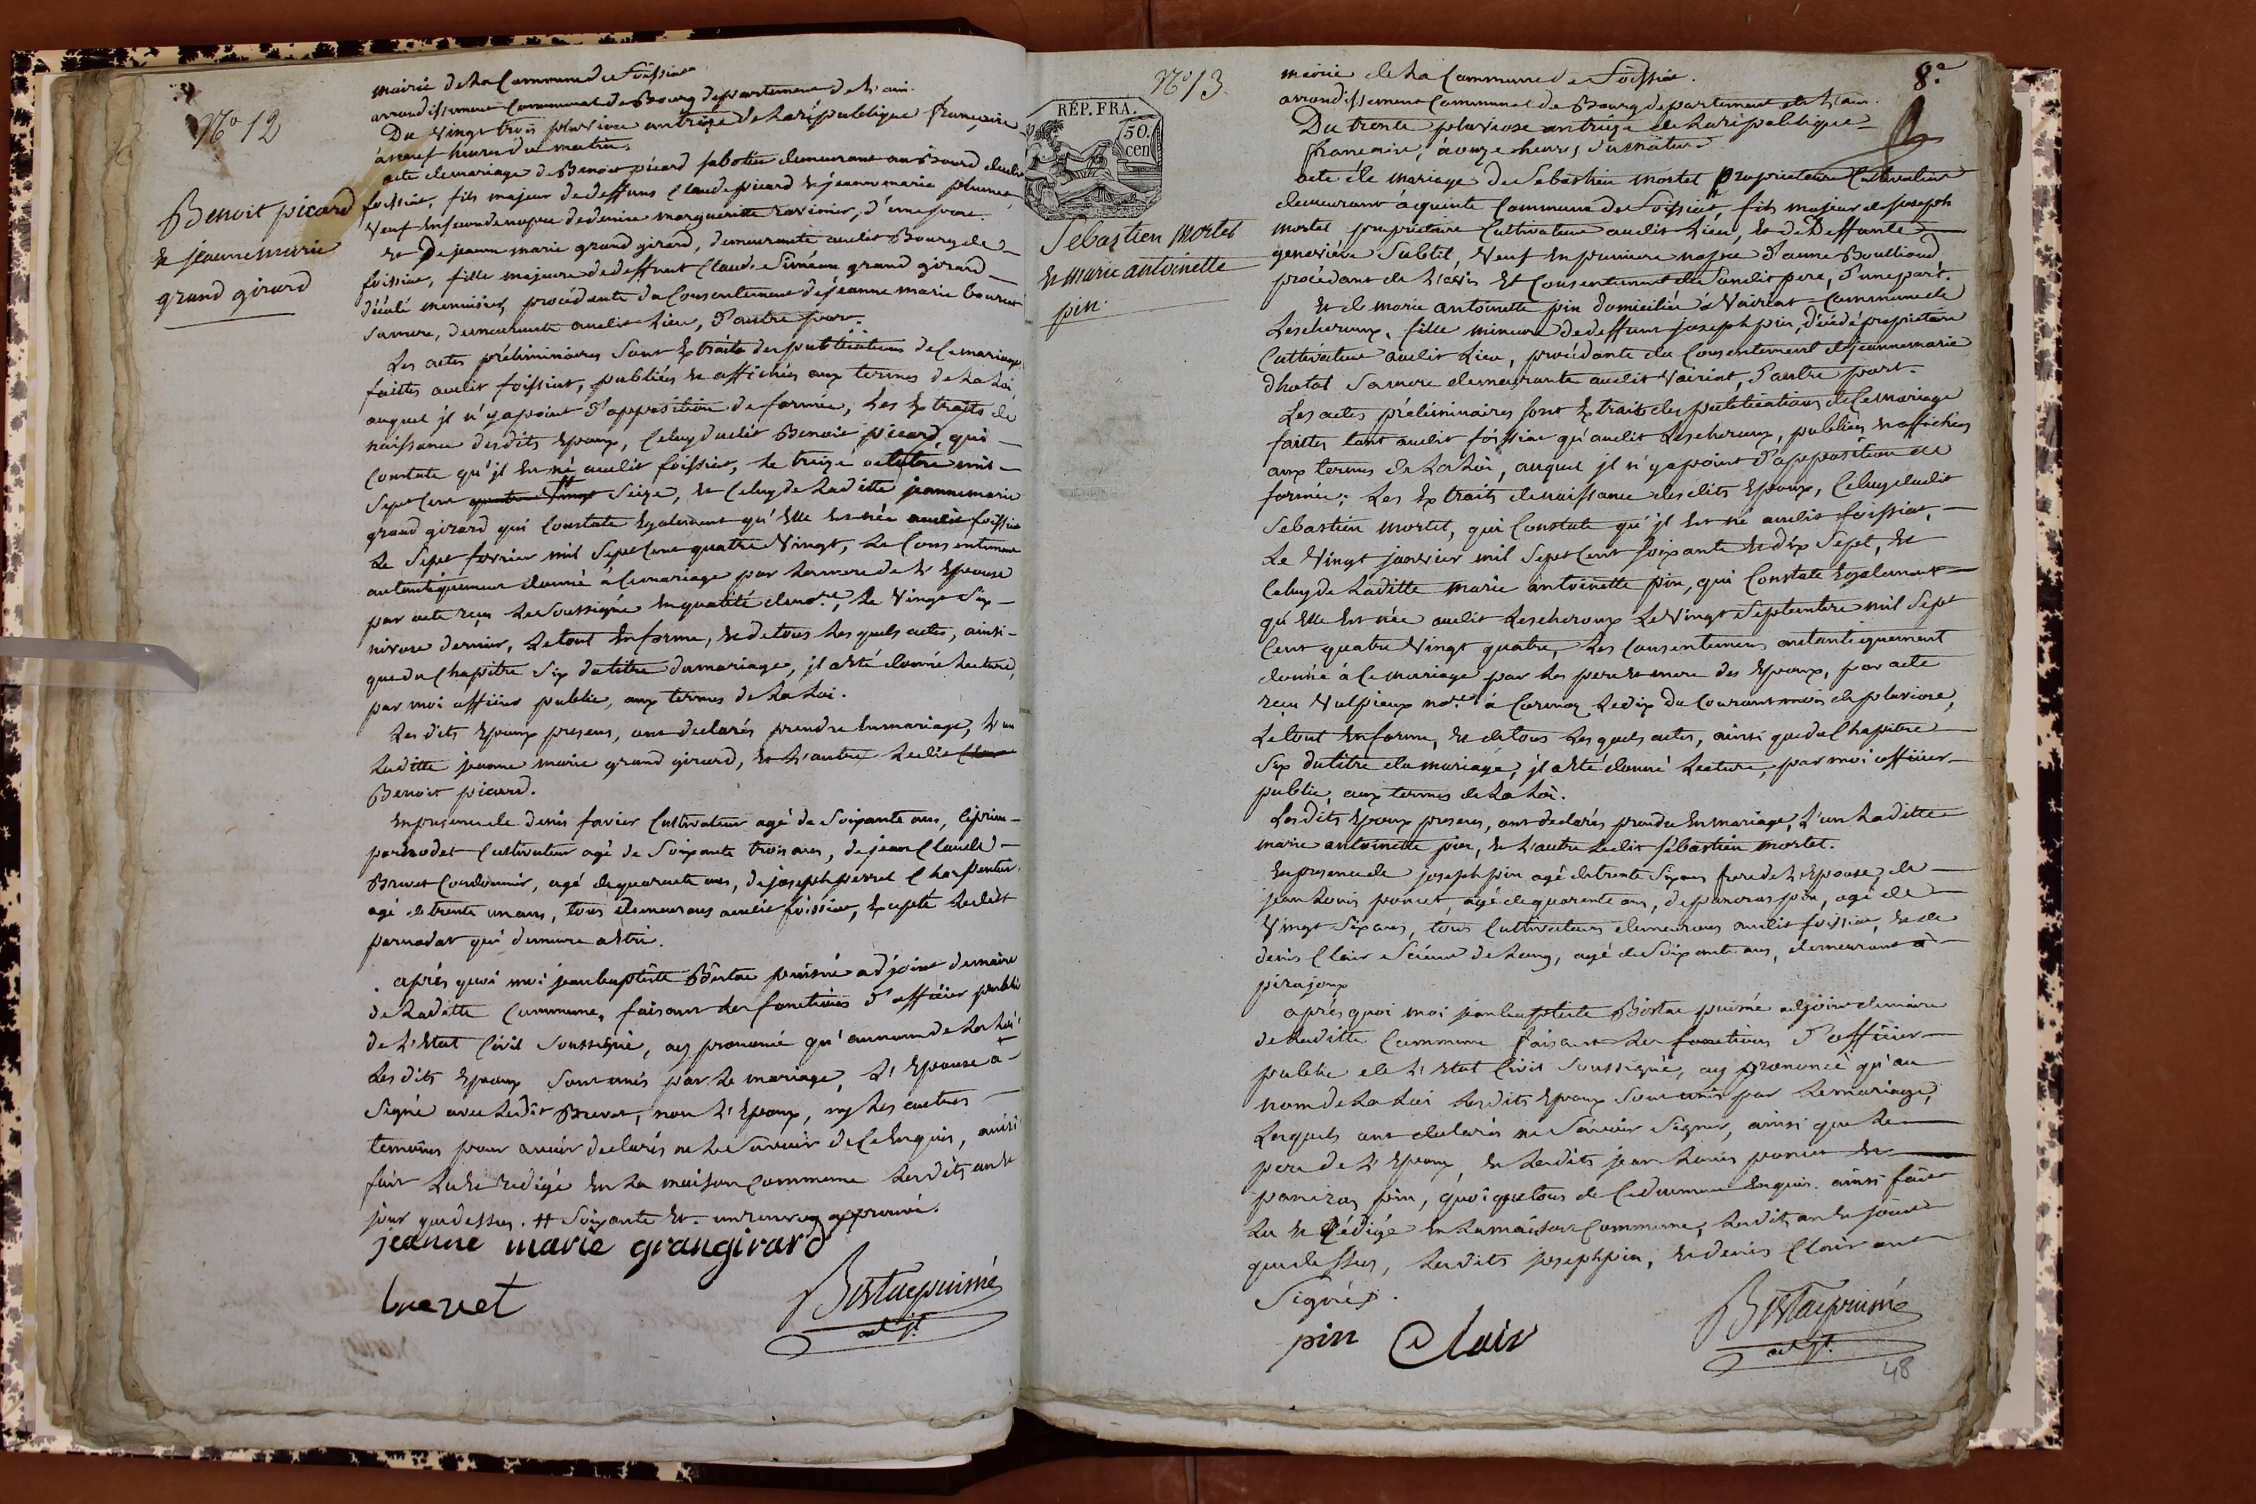 N° 12
Benoit picard
& jeanne marie
grand girard
mairie de la Commune de Foissiat
arrondissement Communal de Bourg departement de L'ain.
Du Vingt trois pluviose an treize de la république française,
à neuf heures du matin.
acte de mariage de Benoit picard sabotier demeurant au Bourg dudit
foissiat, fils majeur de deffunts Claude picard & jeanne marie
Veuf en seconde nopce de denise marguerite, d'une part.
& De jeanne marie grand girard, demeurante audit Bourg de
foissiat, fille majeure de deffunt Claude Siméon grand girard
décédé menuisier, procédante du Consentement de jeanne marie
sa mere, demeurante audit Lieu, d'autre part.
Les actes préliminaires sont Extraits des publications de Ce mariage
faittes audit foissiat, publiées & affichées aux termes de La Loi,
auquel il n'y a point d'opposition de formée, Les Extraits de
naissance desdits Epoux, Celuy dudit Benoit picard, qui
Constate qu'il Est né audit foissiat, le treize octobre mil
Sept Cent quatre Vingt # Seize, & Celuy de Laditte jeanne marie
grand girard qui Constate Egalement qu'Elle Est née audit foissiat
Le Sept fevrier mil Sept Cent quatre Vingt, Le Consentement
autentiquement donné à Ce mariage par La mere de L'Epouse
par acte reçu Le Soussigné En qualité de no.re, Le Vingt Six
nivose dernier, Le tout En forme, & de tous Les quels actes, ainsi
que du Chapitre Six du titre du mariage, il a Eté donné Lecture,
par moi officier public, aux termes de La Loi.
Les dits Epoux presens, ont declarés prendre En mariage, L'un
Laditte jeanne marie grand girard, & L'autre Ledit
Benoit picard.
En presence de denis favier Cultivateur agé de Soixante ans,
Cultivateur agé de Soixante trois ans, de jean Claude
Brevet Cordonnier, agé de quarante ans, de joseph perret Charpentier
agé de trente un ans, tous demeurans audit foissiat, Excepté Ledit
qui demeure
après quoi moi jean baptiste Bostae puisné adjoint de maire
de Laditte Commune, faisant Les fonctions d'officier public
de L'Etat Civil Soussigné, ay prononcé qu'au nom de La Loi
Les dits Epoux Sont unis par Le mariage, L'Epouse a
Signé avec Ledit Brevet, non L'Epoux, ny Les autres
temoins pour avoir declarés ne Le Savoir de Ce Enquis, ainsi
fait Lu & redigé En La maison Commune Lesdits an &
jour que dessus. # Soixante & un renvoy approuvé.
jeanne marie grangirard
brevet
Bostae puisné
adj.t
8.e
N° 13
RÉP. FRA.
50.
cen
Sebastien Mortet
& marie antoinette
pin
mairie de La Commune de Foissiat.
arrondissement Communal de Bourg departement de L'ain.
Du trente pluviose an treize de La république
française, à onze heures du matin
acte de mariage de Sebastien mortet propriétaire Cultivateur
demeurant à Commune de Foissiat, fils majeur de joseph
mortet propriétaire Cultivateur audit Lieu, & de Deffunte
geneviève Subtil, Veuf En premiere nopce d'anne
procédant de L'avis & Consentement de Sondit pere, d'une part.
& de marie antoinette pin domiciliée à Commune de
Lescheroux, fille mineure de deffunt joseph pin, décédé propriétaire
Cultivateur audit Lieu, procédante du Consentement de jeanne marie
sa mere demeurante audit, d'autre part.
Les actes préliminaires sont Extraits des publications de Ce mariage
faittes tant audit foissiat qu'audit Lescheroux, publiées & affichées
aux termes de La Loi, auquel il n'y a point d'opposition de
formée; Les Extraits de naissance desdits Epoux, Celuy dudit
Sebastien mortet, qui Constate qu'il Est né audit foissiat,
Le Vingt janvier mil Sept Cent Soixante & dix Sept, &
Celuy de Laditte marie antoinette pin, qui Constate Egalement
qu'Elle Est née audit Lescheroux Le Vingt Septembre mil Sept
Cent quatre Vingt quatre, Les Consentemens autentiquement
donné à Ce mariage par Les pere & mere des Epoux, par acte
reçu no.re à Cormoz Le dix du Courant mois de pluviose,
Le tout En forme, & de tous Les quels actes, ainsi que du Chapitre
Six du titre du mariage, il a Eté donné Lecture, par moi officier
public, aux termes de La Loi.
Lesdits Epoux presens, ont declarés prendre En mariage, L'un Laditte
marie antoinette pin, & L'autre Ledit Sébastien mortet.
En presence de joseph pin agé de trente Six ans frere de L'Epouse, de
jean Louis poncet, agé de quarante ans, de pancras pin, agé de
Vingt Six ans, tous Cultivateurs demeurans audit foissiat, & de
denis Clair Scieur de Long, agé de Soixante ans, demeurant à
pirajoux
après quoi moi jean baptiste Bostae puisné adjoint de maire
de Laditte Commune faisant Les fonctions d'officier
public de L'Etat Civil Soussigné, ay prononcé qu'au
nom de La Loi Lesdits Epoux Sont unis par Le mariage,
Lesquels ont declarés ne Savoir Signer, ainsi que Le
pere de L'Epoux, & Lesdits jean Louis poncet &
pancras pin, quoique tous de Ce dument Enquis. ainsi fait
Lu & rédigé En La maison Commune, Lesdits an & jour
que dessus, Lesdits joseph pin, & denis Clair ont
Signés.
pin Clair
Bostae puisné
adj.t
48